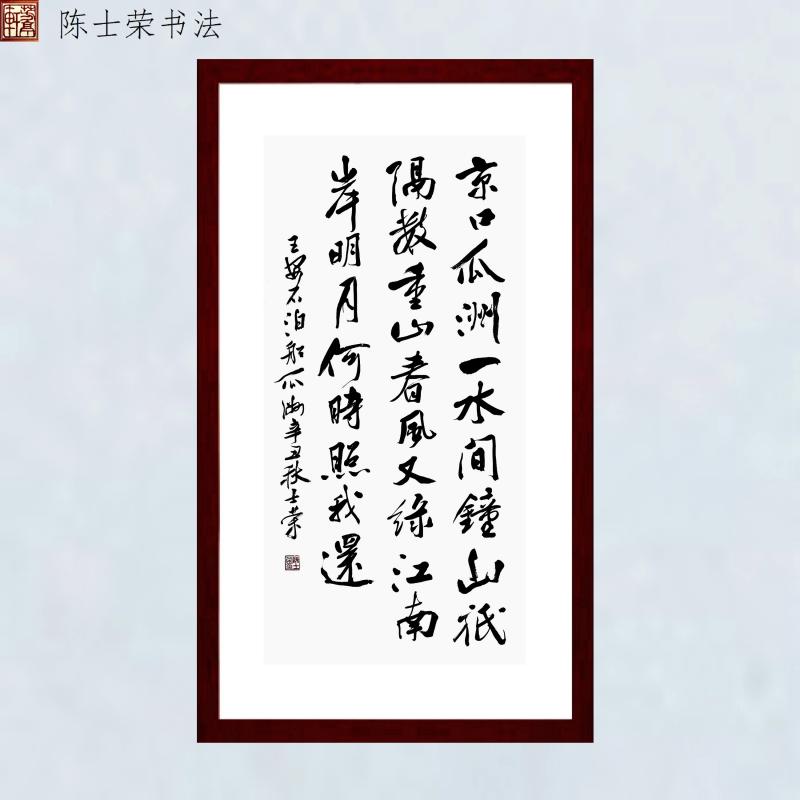 陈士荣书法
京口瓜洲一水间鐘山祇
隔数重山春風又绿江南
岸明月何時照我還
王安石泊船瓜洲辛丑秋士荣